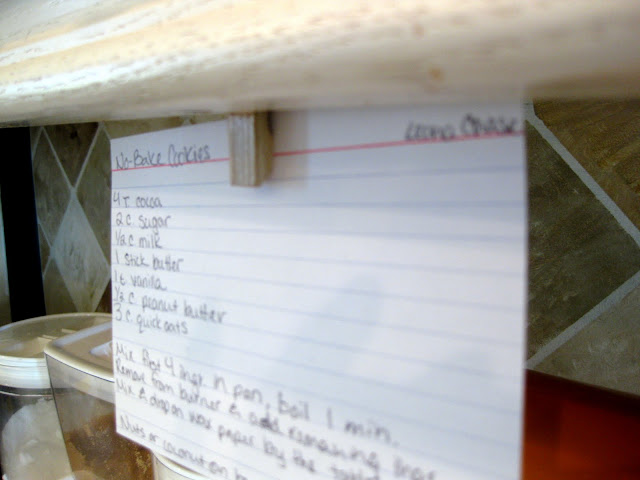 No-Bake Cookies
4 T. cocoa
2 c. sugar
1/2 c. milk
1 stick butter
1 t. vanilla
1/2 c. peanut butter
3 c. quick oats
Mix first 4 ingr. in pan, boil 1 min.
Remove from burner & add remaining ingr.
Mix & drop on wax paper by the
Nuts or coconut